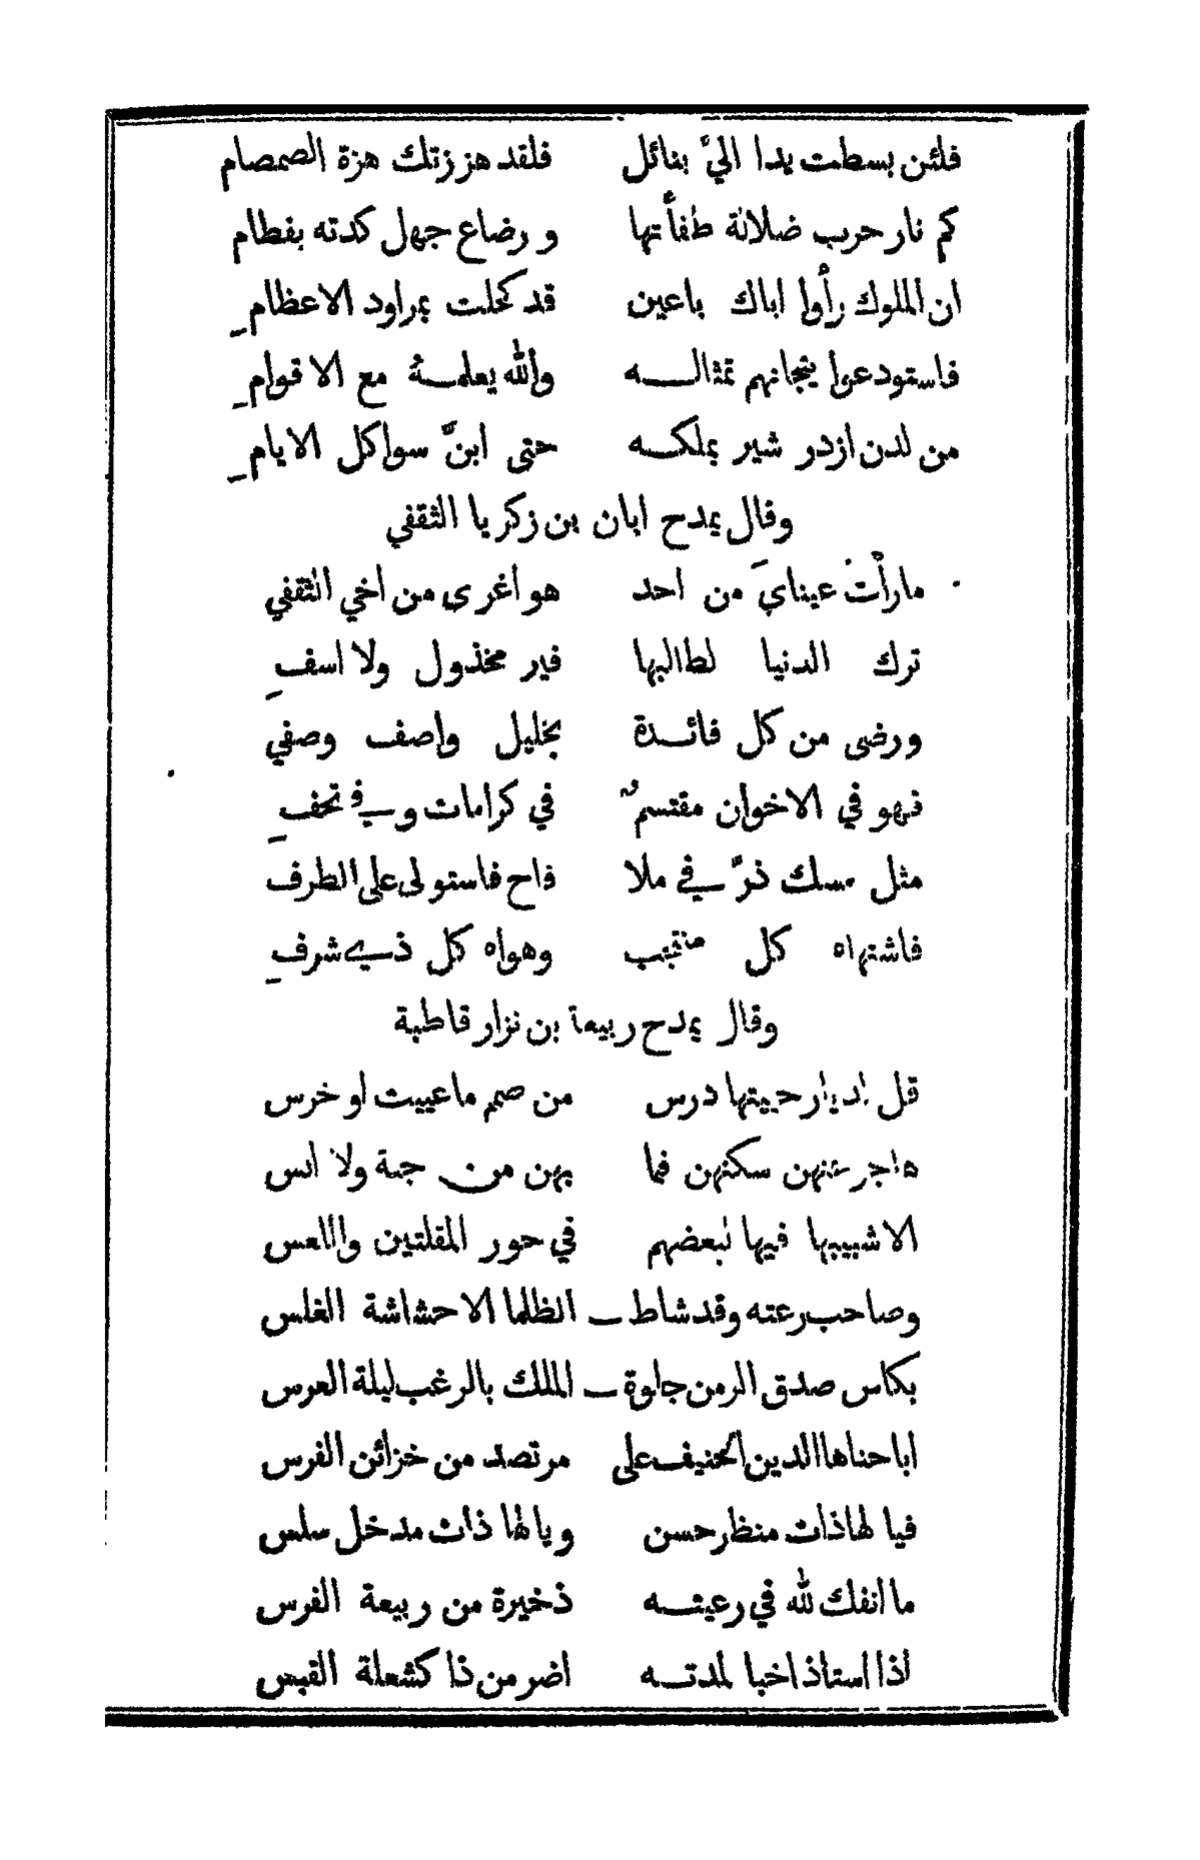 فلئن بسطت يدا اليّ بنائل فلقد هززتك هزة الصمصام
كم نار حرب ضلالة طفأتها و رضاع جهل كدته بفطام
ان الملوك رأوا اباك باعين قد كحلت بمراود الاعظامِ
فاستودعوا تيجانهم تمثالـــه والله يعلمـه مع الاقوامِ
من لدن ازدر شير بملكـــه حتى ابنّ سواكل الايامِ
وقال يمدح ابان بن زكريا الثقفي
مارأت عينايَ من احد هو اغرى من اخي الثقفي
ترك الدنيا لطالبها غير مخذول ولا اسفِ
ورضى من كل فائـدة بخليل واصف وصفي
فهو في الاخوان مقتسمٌ في كرامات وفي تحفِ
مثل مسك ذرّ في ملا فاح فاستولى على الطرف
فاشتهاه كل منتجب وهواه كل ذي شرفِ
وقال يمدح ربيعة بن نزار قاطبة
قل لديار حييتها درس من صمم ما عييت او خرس
هاجر عنهن سكنهن فما بهن من جنة ولا انس
الا شبيبها فيها لبعضهم في حور المقلتين واللعس
وصاحب رعته وقد شاط ـ الظلما الا حشاشة الغلس
بكاس صدق الر من جلوة ـ الملك بالرغب ليلة العرس
اباحناها الدين الحنيف على مرتصد من خزائن الفرس
فيا لها ذات منظر حسن ويا لها ذات مدخل سلس
ما انفك لله في رعيتـــه ذخيرة من ربيعة الفرس
اذا استاذ اخبا لمدتـــه اضر من ذا كشعلة القبس